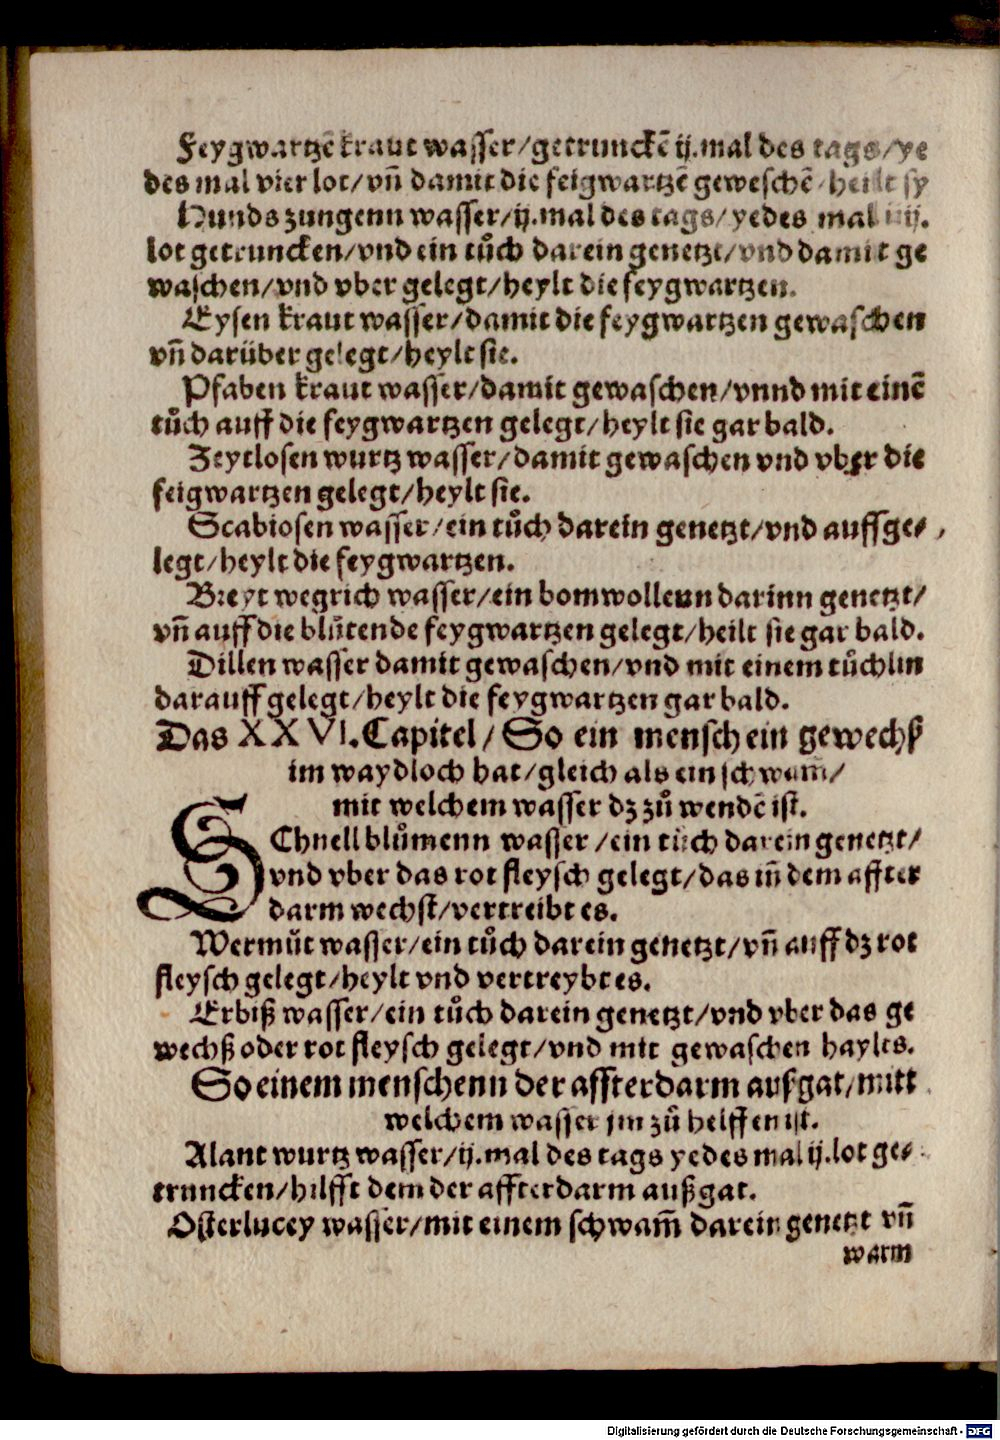 Feygwartzē kraut wasser/getrunckē ij.mal des tags/ye
des mal vier lot/vn̄ damit die feigwartzē geweschē/heilt sy
Hunds zungenn wasser/ij.mal des tags/yedes mal iiij.
lot getruncken/vnd ein tuͦch darein genetzt/vnd damit ge
waschen/vnd vber gelegt/heylt die feygwartzen.
Eysen kraut wasser/damit die feygwartzen gewaschen
vn̄ darüber gelegt/heylt sie.
Pfaben kraut wasser/damit gewaschen/vnnd mit einē
tuͦch auff die feygwartzen gelegt/heylt sie gar bald.
Zeytlosen wurtz wasser/damit gewaschen vnd vber die
feigwartzen gelegt/heylt sie.
Scabiosen wasser/ein tuͦch darein genetzt/vnd auffge⸗
legt/heylt die feygwartzen.
Breyt wegrich wasser/ein bomwollenn darinn genetzt/
vn̄ auff die bluͤtende feygwartzen gelegt/heilt sie gar bald.
Dillen wasser damit gewaschen/vnd mit einem tuͤchlin
darauff gelegt/heylt die feygwartzen gar bald.
Das XXVI.Capitel/So ein mensch ein gewechß
im waydloch hat/gleich als ein schwam̄/
mit welchem wasser dz zuͦ wendē ist.
SChnell bluͦmenn wasser/ein tuͦch darein genetzt/
vnd vber das rot fleysch gelegt/das in̄ dem affter
darm wechst/vertreibt es.
Wermuͦt wasser/ein tuͦch darein genetzt/vn̄ auff dz rot
fleysch gelegt/heylt vnd vertreybt es.
Erbiß wasser/ein tuͦch darein genetzt/vnd vber das ge
wechß oder rot fleysch gelegt/vnd mit gewaschen haylts.
So einem menschenn der affterdarm außgat/mitt
welchem wasser jm zuͦ helffen ist.
Alant wurtz wasser/ij.mal des tags yedes mal ij.lot ge⸗
truncken/hilfft dem der affterdarm außgat.
Osterlucey wasser/mit einem schwam̄ darein genetzt vn̄
warm
Digitalisierung gefördert durch die Deutsche Forschungsgemeinschaft - DFG